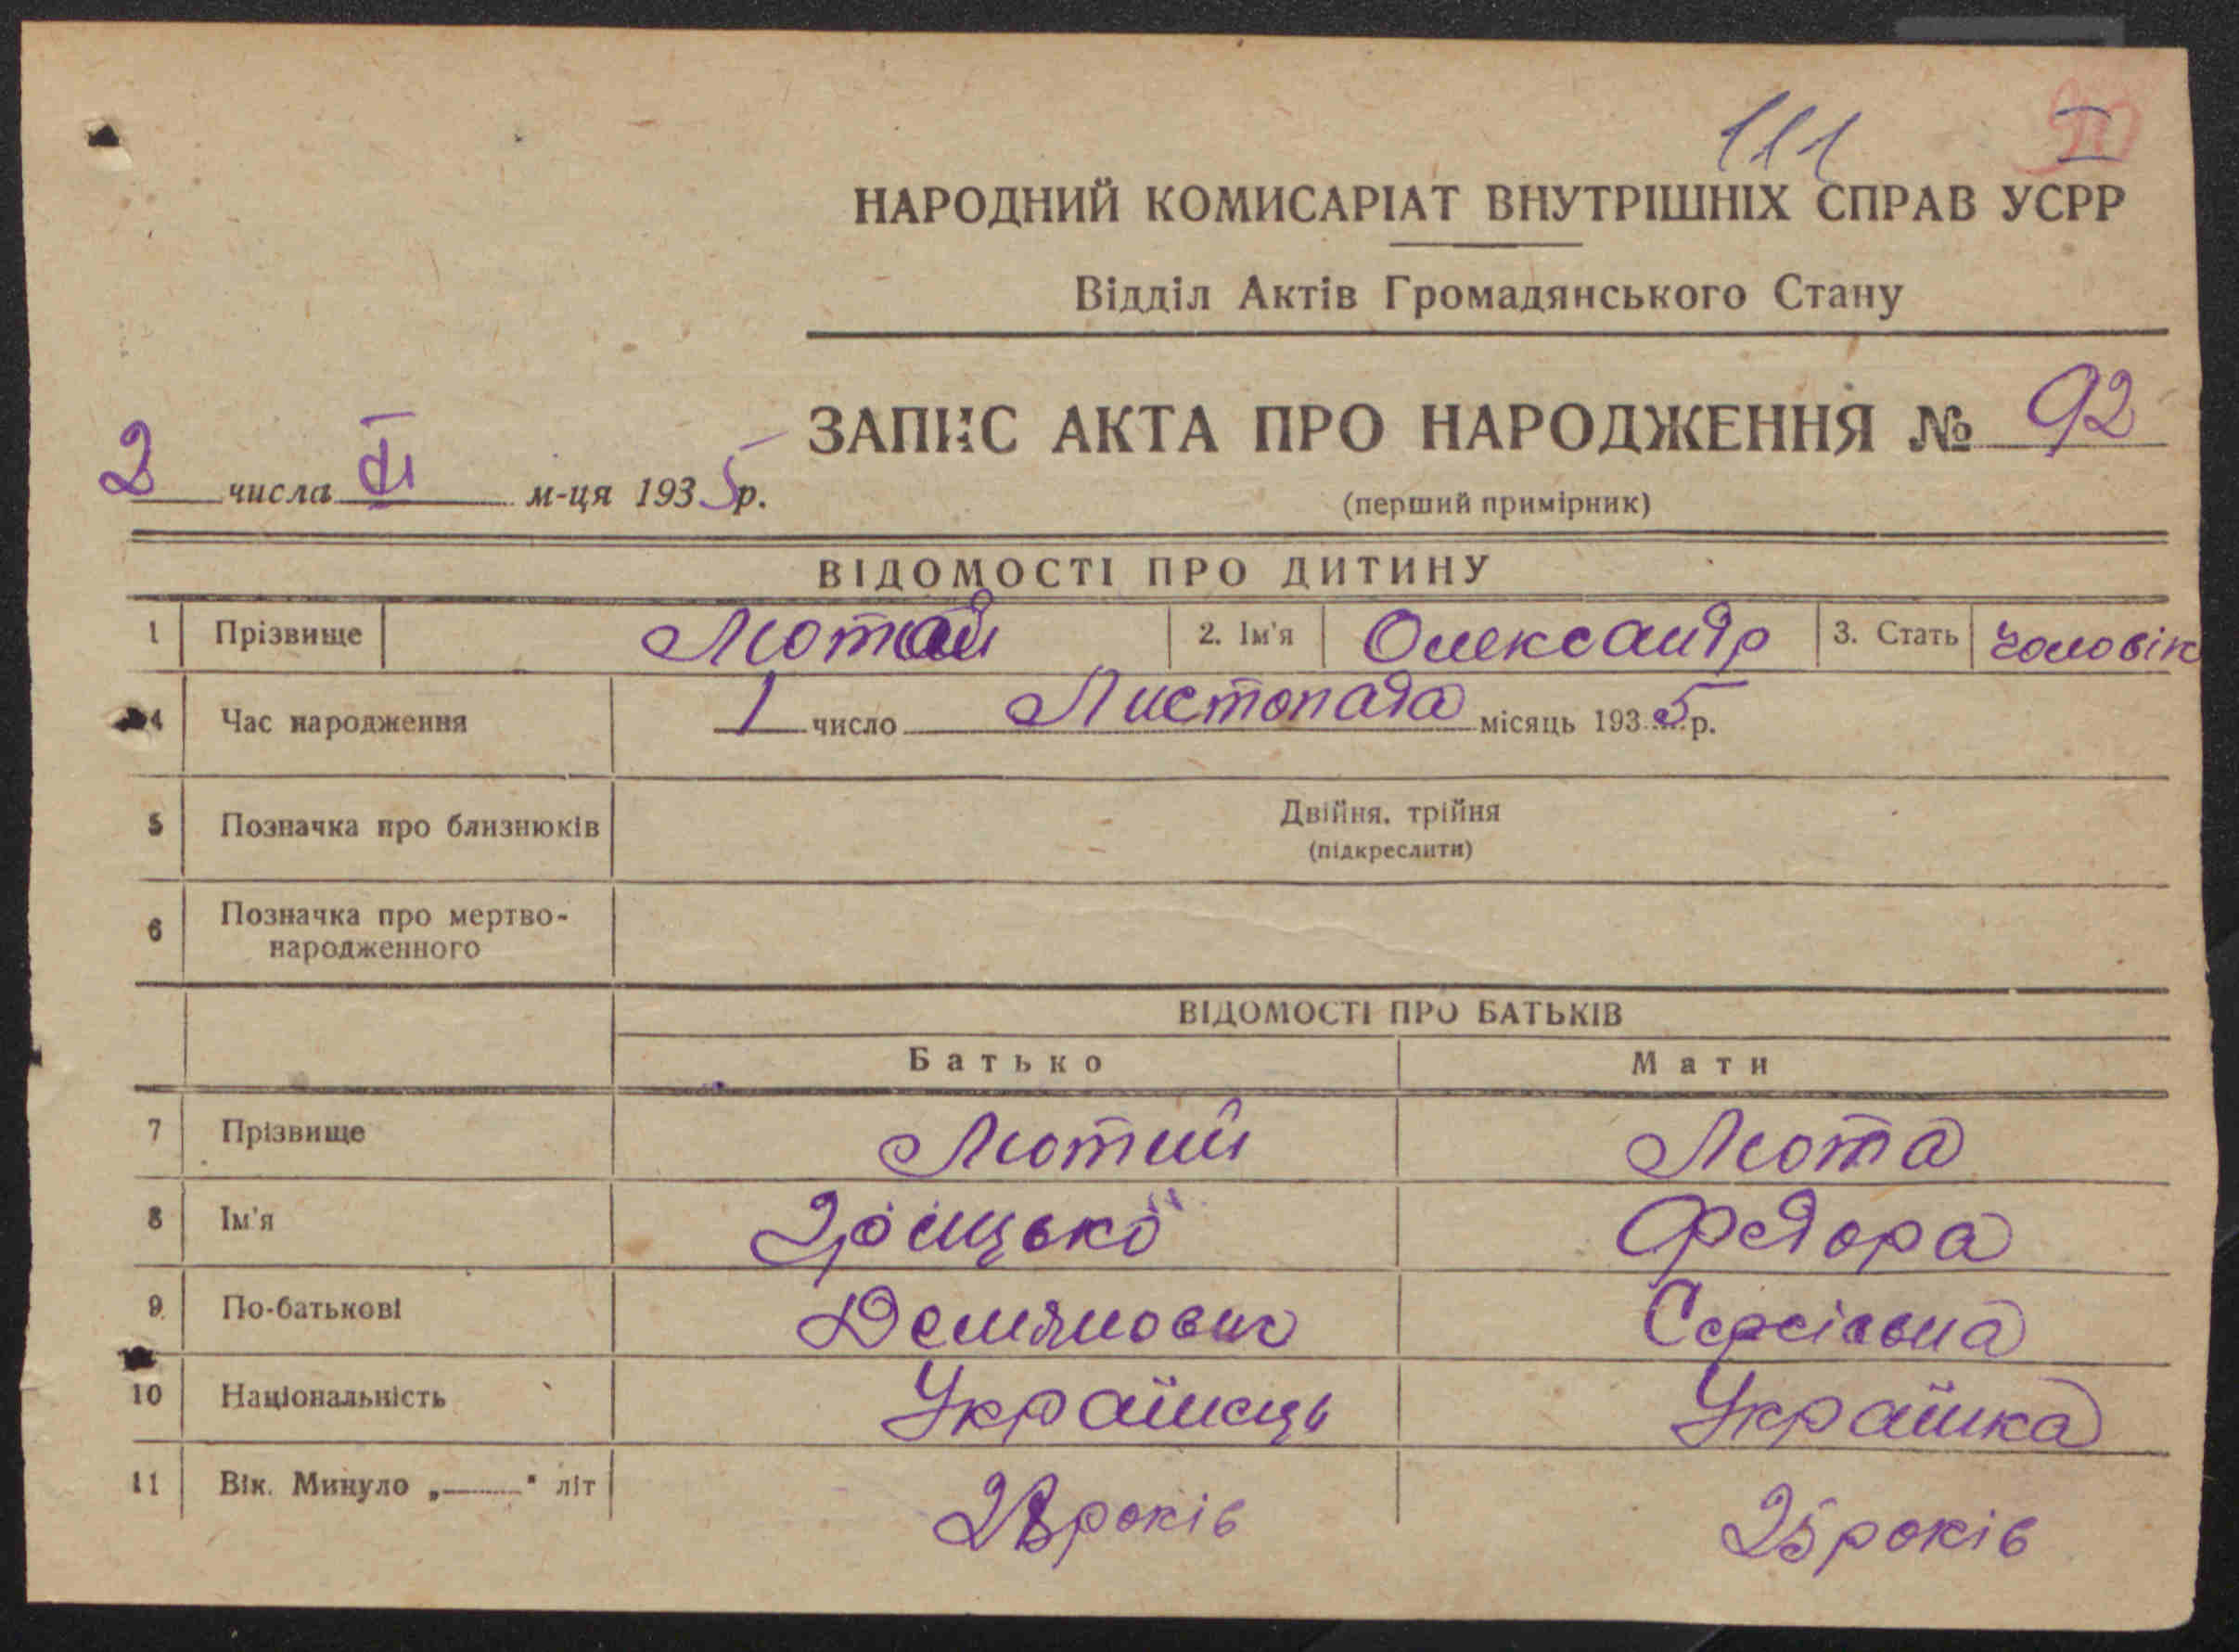 111 I
НАРОДНИЙ КОМИСАРІАТ ВНУТРІШНІХ СПРАВ УСРР
Відділ Актів Громадянського Стану
ЗАПИС АКТА ПРО НАРОДЖЕННЯ № 92
2 числа XI м-ця 1935 р.
(перший примірник)
ВІДОМОСТІ ПРО ДИТИНУ
1 Прізвище Лютий 2. Ім'я Олександр 3. Стать чоловік
4 Час народження 1 число Листопада місяць 1935 р.
5 Позначка про близнюків Двійня, трійня
(підкреслити)
6 Позначка про мертво-
народженного
ВІДОМОСТІ ПРО БАТЬКІВ
Батько Мати
7 Прізвище Лютий Люта
8 Ім'я Грицько Федора
9. По-батькові Демянович Сергієвна
10 Національність Українець Українка
11 Вік. Минуло „ " літ 28 років 25 років